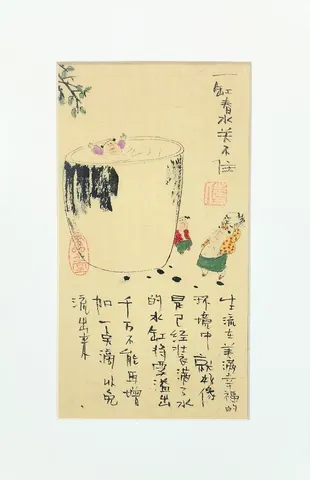 一缸春水关不住
生活在美满幸福的
环境中就好像
是已经装满了水
的水缸将要溢出
千万不能再增
加一点滴以免
流出来